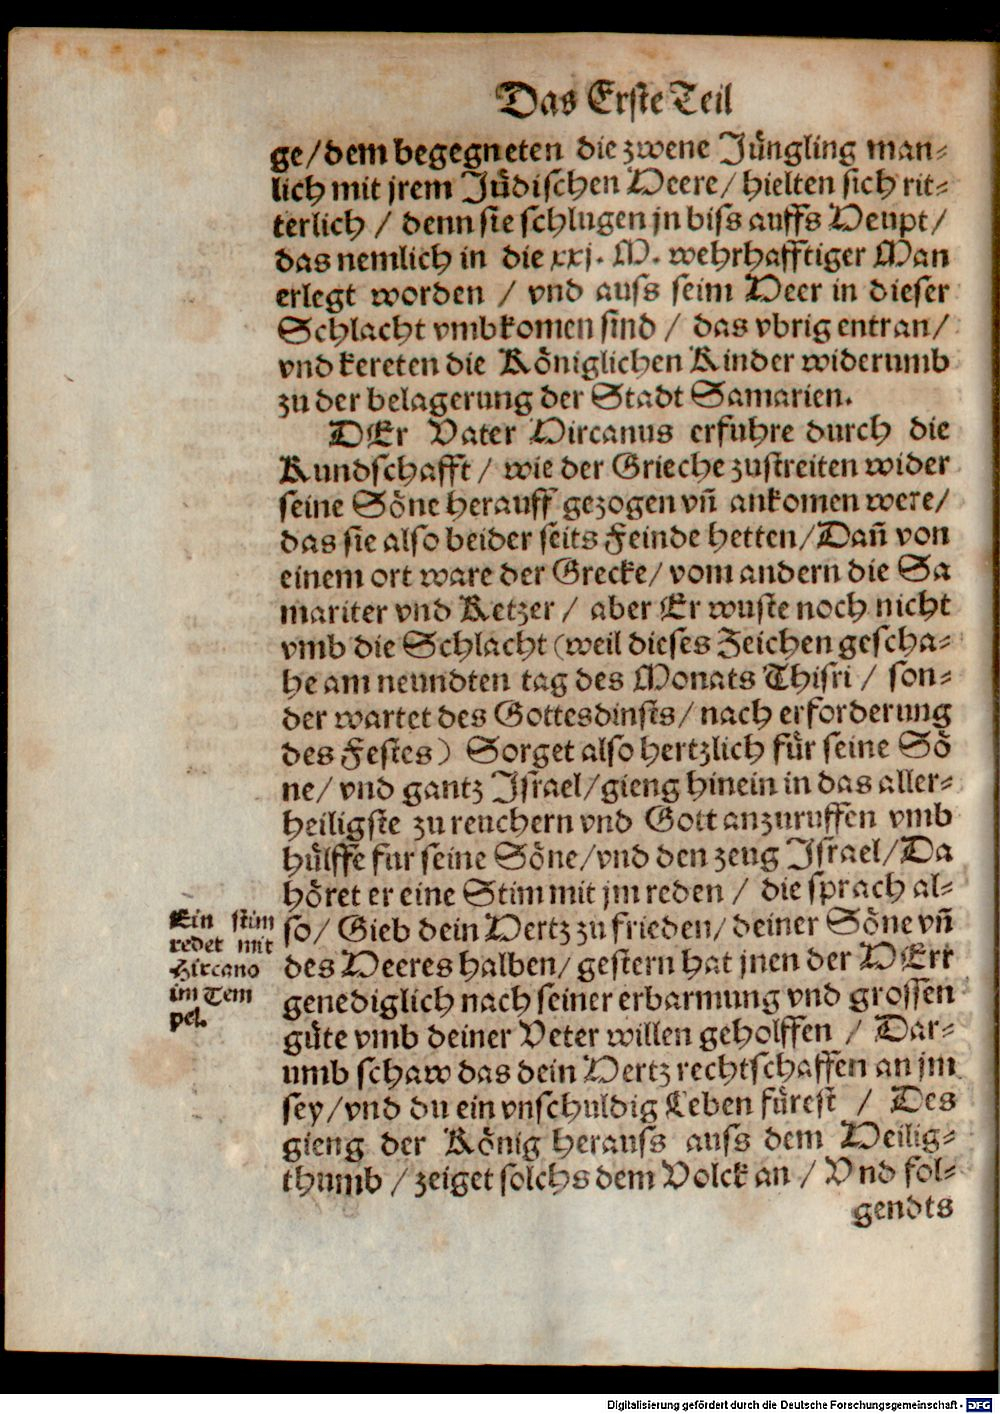 Das Erste Teil
ge/dem begegneten die zwene Jüngling man-
lich mit jrem Jüdischen Heere/ hielten sich rit-
terlich / denn sie schlugen jn biss auffs Heupt/
das nemlich in die xxj. M. wehrhafftiger Man
erlegt worden / vnd auss seim Heer in dieser
Schlacht vmbkomen sind / das vbrig entran/
vnd kereten die Königlichen Kinder widerumb
zu der belagerung der Stadt Samarien.
DEr Vater Hircanus erfuhre durch die
Kundschafft / wie der Grieche zustreiten wider
seine Söne herauff gezogen vñ ankomen were/
das sie also beider seits Feinde hetten/Dañ von
einem ort ware der Grecke/ vom andern die Sa
mariter vnd Ketzer / aber Er wuste noch nicht
vmb die Schlacht (weil dieses Zeichen gescha-
he am neundten tag des Monats Thisri / son-
der wartet des Gottesdinsts/ nach erforderung
des Festes) Sorget also hertzlich für seine Sö
ne/ vnd gantz Israel/gieng hinein in das aller-
heiligste zu reuchern vnd Gott anzuruffen vmb
hülffe fur seine Söne/vnd den zeug Israel/Da
höret er eine Stim mit jm reden / die sprach al-
so/ Gieb dein Hertz zu frieden/ deiner Söne vñ
des Heeres halben/ gestern hat jnen der HErr
genediglich nach seiner erbarmung vnd grossen
güte vmb deiner Veter willen geholffen / Dar-
umb schaw das dein Hertz rechtschaffen an jm
sey/vnd du ein vnschuldig Leben fürest / Des
gieng der König herauss auss dem Heilig-
thumb / zeiget solchs dem Volck an / Vnd fol-
gendts
Ein stim
redet mit
Hircano
im Tem
pel.
Digitalisierung gefördert durch die Deutsche Forschungsgemeinschaft - DFG